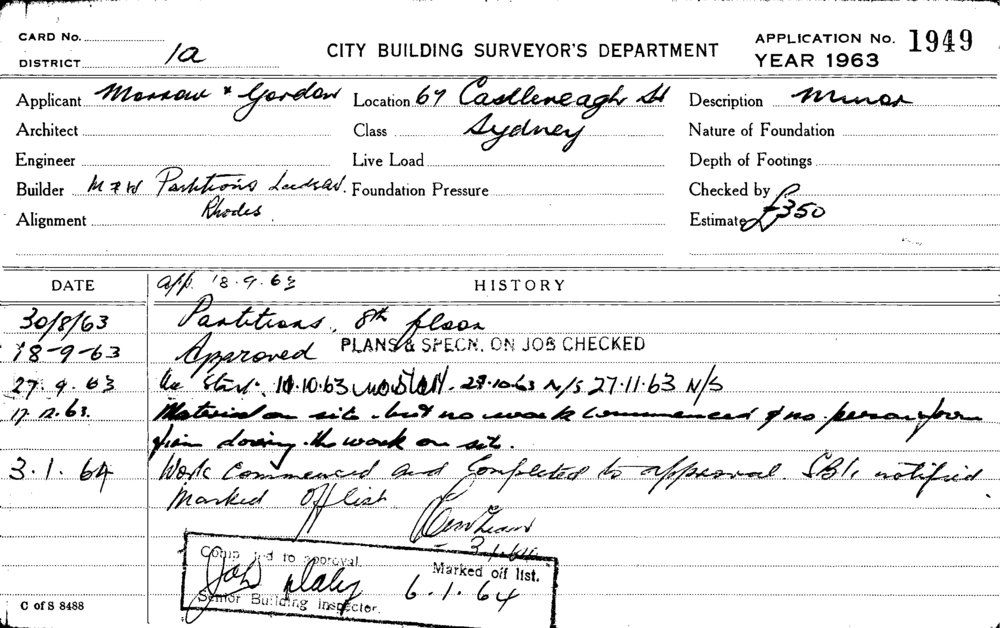 CARD No.
DISTRICT 1a
CITY BUILDING SURVEYOR'S DEPARTMENT
APPLICATION No. 1949
YEAR 1963
Applicant Morrow & Gordon Location 67 Castlereagh St Description Minor
Architect Class Sydney Nature of Foundation
Engineer Live Load Depth of Footings
Builder M & W Partitions Foundation Pressure Checked by
Alignment Rhodes. Estimate £350
DATE app. 18.9.63 HISTORY
30/8/63 Partitions, 8th floor
18-9-63 Approved PLANS & SPECN. ON JOB CHECKED
27.9.63 No Start. 10.10.63 no start. 29.10.63 N/S 27.11.63 N/S
17.12.63. Material on site but no work commenced & no person from
firm doing the work on site.
3.1.64 Work commenced and completed to approval. SBI. notified.
Marked off list
3.1.64
Completed to approval.
Marked off list.
Daley 6.1.64
Senior Building Inspector.
C of S 8488